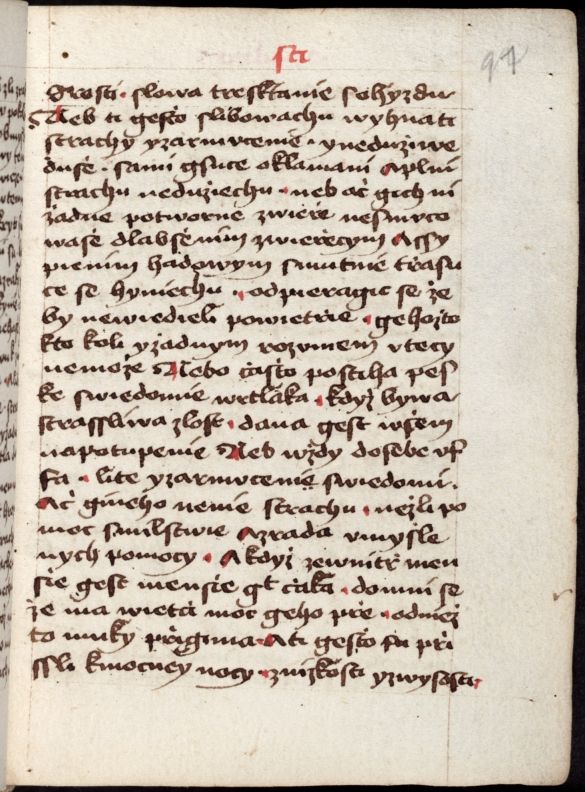 sti
97
Prosti · slowa tresktanie sohyzdu
Neb ti gesto slibowachu wyhnati
strachy yzarmucenie · yneduziwe
duse · sami gsuce oklamani Aplni
strachu neduziechu · neb ač gich ni
žadne potworne zwieře nesmuco
wase dlabsenim zwieřecym Assy
pienim hadowym smutnie třasu
ce se hyniechu · odpieragic se že
by newiedieli powietřie · gehozto
kto koli yžadnym rozumem vtecy
nemože Nebo často postiha pes
ke swiedomie wrtlaka · když bywa
strassliwa zlost · dana gest wsem
napotupenie Neb wždy dosebe vf
fa · lite yzarmucenie swiedomi ·
Ač gineho nenie strachu · nežli po
moc smilstwie Azrada vmysle
nych pomocy · A když zewnitř men
sie gest mensie gt čaka · domni se
že ma wietči moc geho pře · odniež
to muky přigima · Ati gesto su při
ssli kmocney nocy · znizkosti yzwysosti